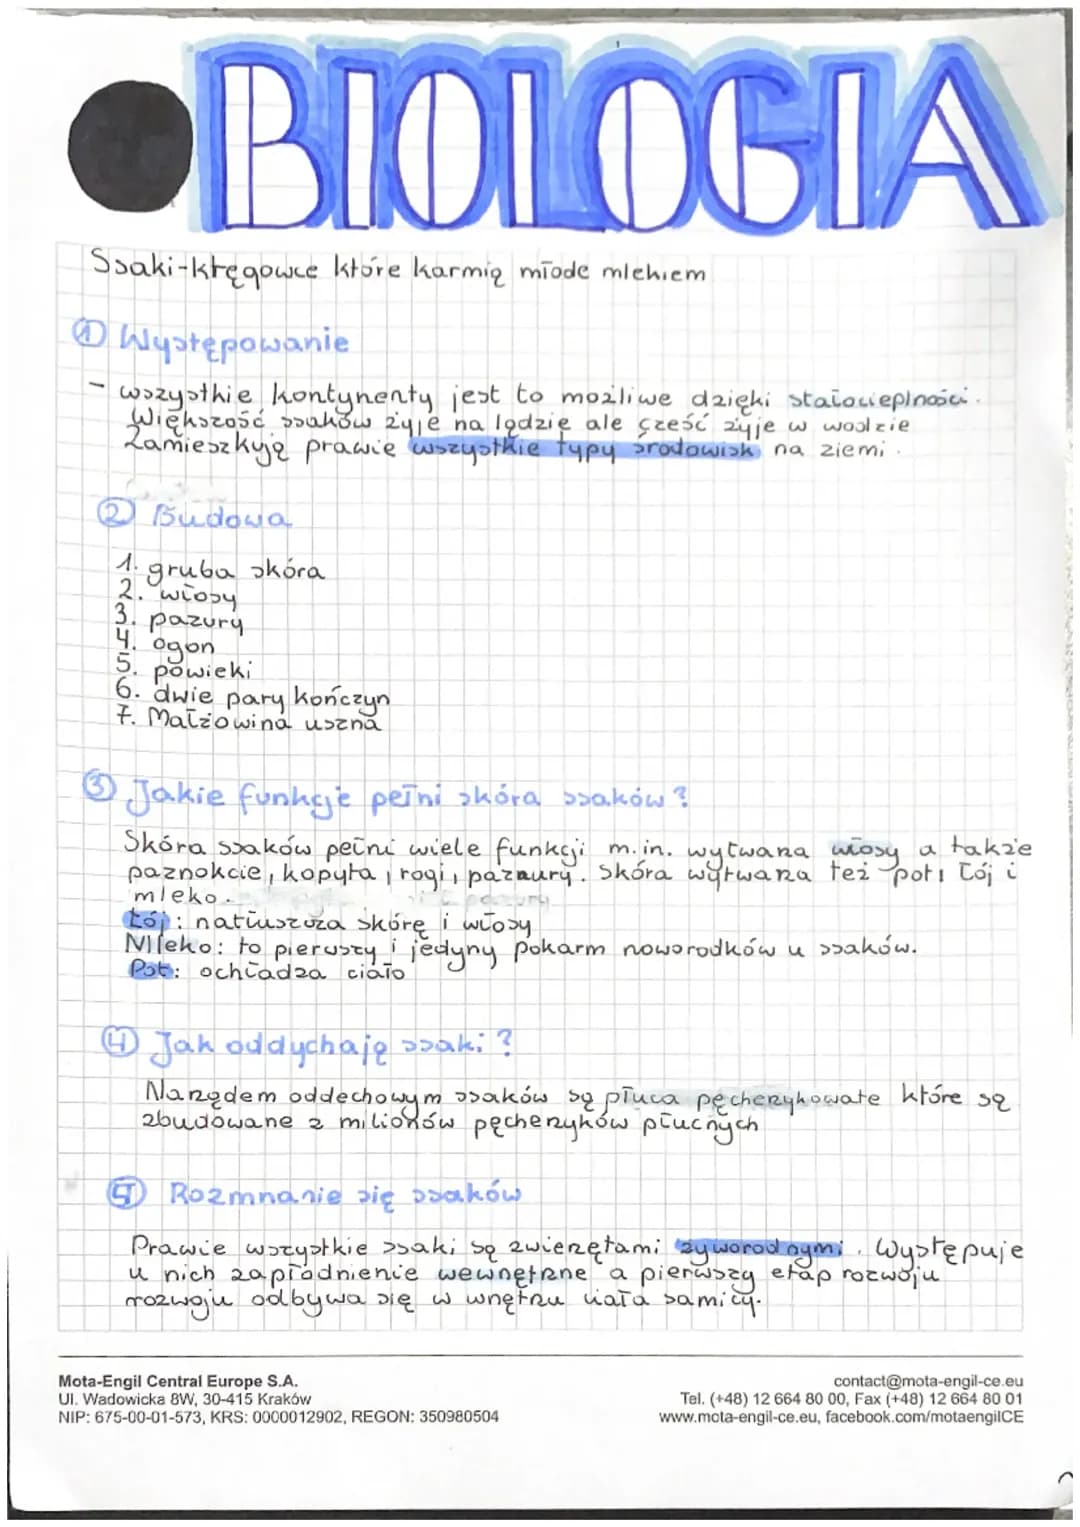 BIOLOGIA
Ssaki-kręgowce które karmią młode mlekiem
① Występowanie
- wszystkie kontynenty jest to możliwe dzięki stałocieplności.
Większość ssaków żyje na lądzie ale część żyje w wodzie
Zamieszkują prawie wszystkie typy środowisk na ziemi.
② Budowa
1. gruba skóra
2. włosy
3. pazury
4. ogon
5. powieki
6. dwie pary kończyn
7. Małżowina uszna
③ Jakie funkcje pełni skóra ssaków?
Skóra ssaków pełni wiele funkcji m.in. wytwarza włosy a także
paznokcie, kopyta, rogi, pazury. Skóra wytwarza też pot, łój i
mleko.
Łój: natłuszcza skórę i włosy
Mleko: to pierwszy i jedyny pokarm noworodków u ssaków.
Pot: ochładza ciało
④ Jak oddychają ssaki?
Narządem oddechowym ssaków są płuca pęcherzykowate które są
zbudowane z milionów pęcherzyków płucnych
⑤ Rozmnanie się ssaków
Prawie wszystkie ssaki są zwierzętami żyworodnymi. Występuje
u nich zapłodnienie wewnętrzne a pierwszy etap rozwoju
rozwoju odbywa się w wnętrzu ciała samicy.
Mota-Engil Central Europe S.A.
Ul. Wadowicka 8W, 30-415 Kraków
NIP: 675-00-01-573, KRS: 0000012902, REGON: 350980504
contact@mota-engil-ce.eu
Tel. (+48) 12 664 80 00, Fax (+48) 12 664 80 01
www.mota-engil-ce.eu, facebook.com/motaengilCE